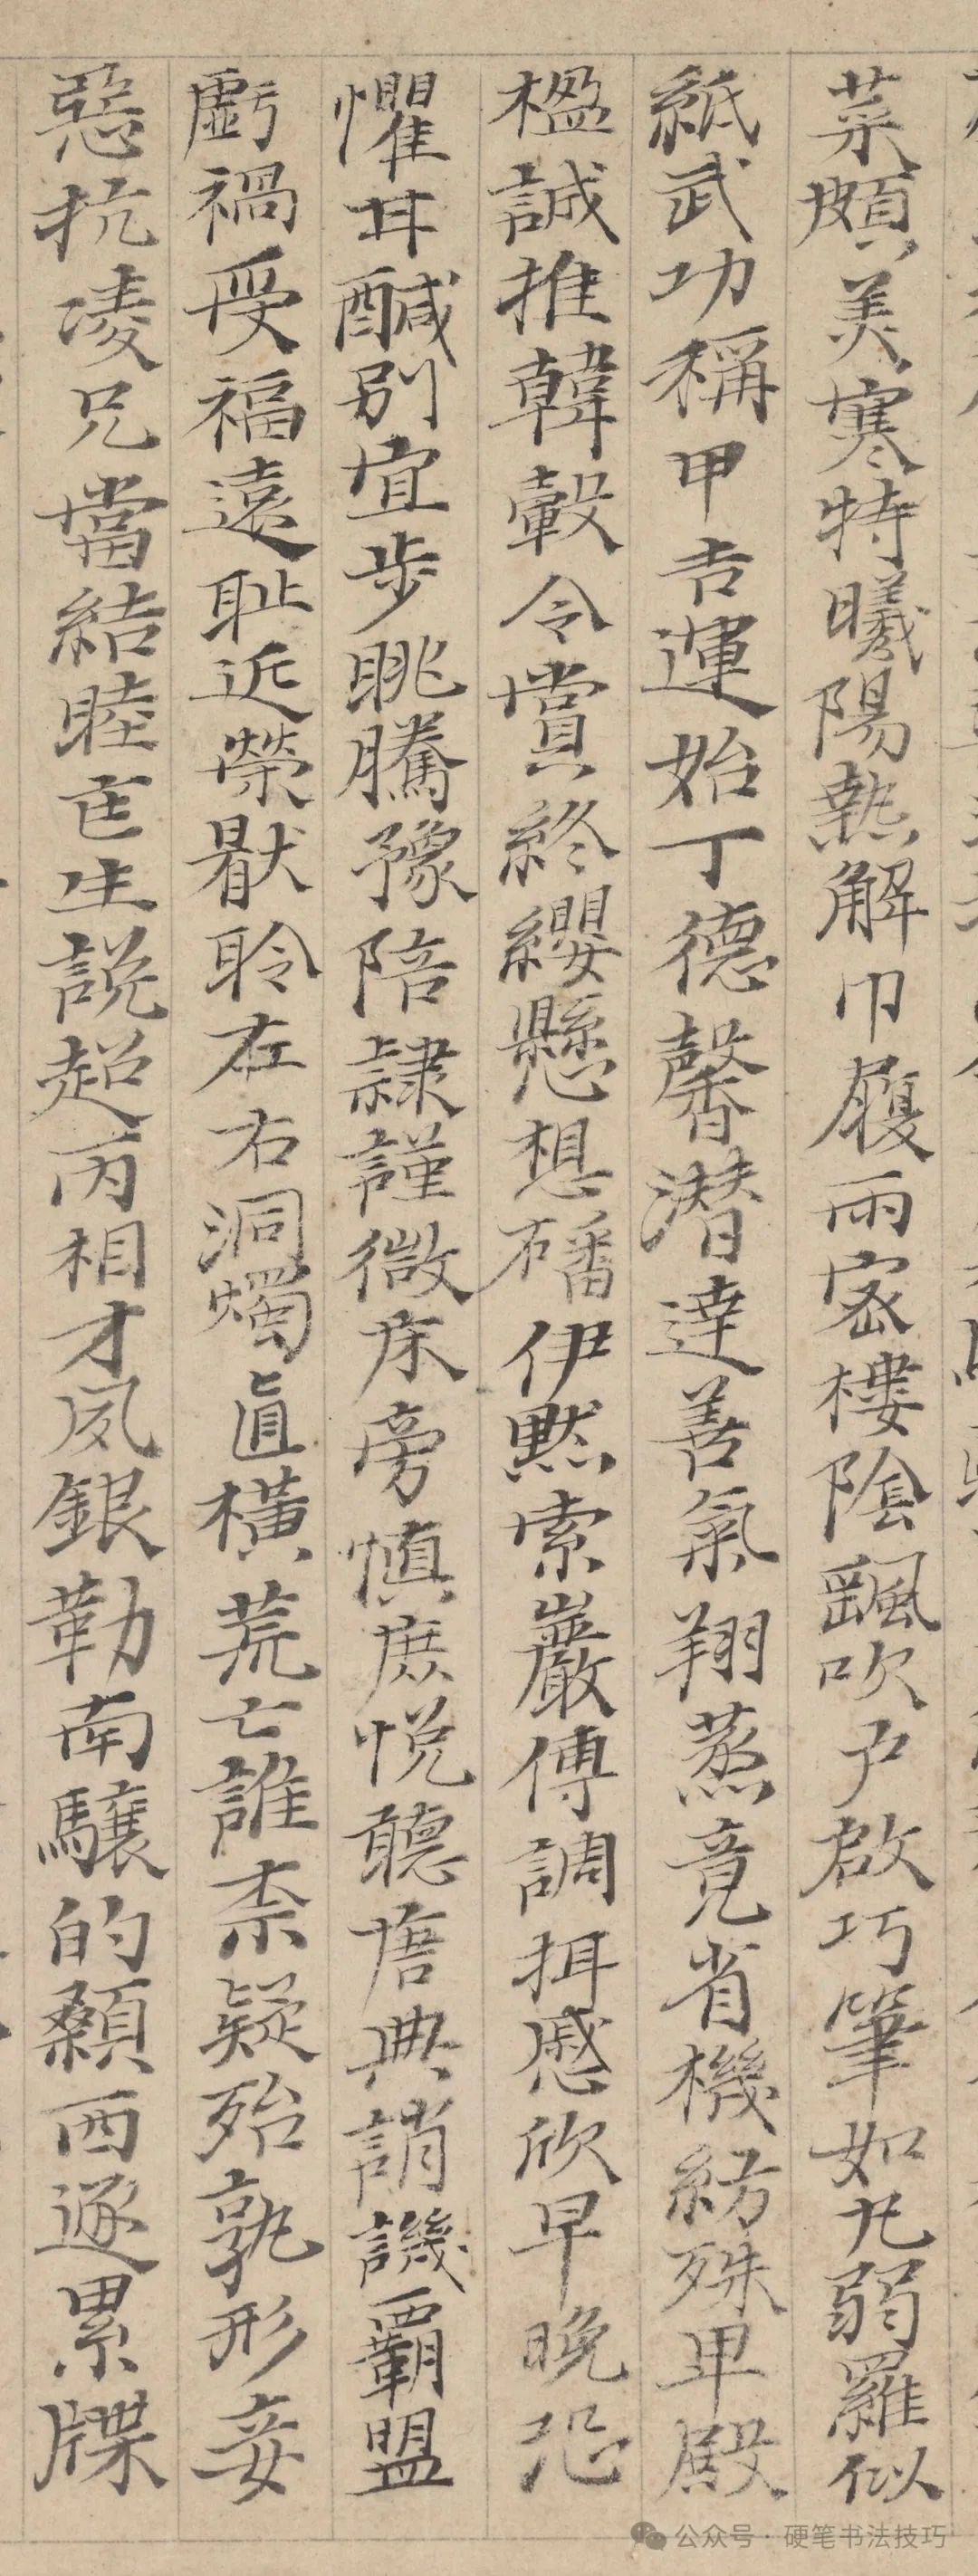 菜頗美寒特曦陽熱解巾履雨密樓陰颿吹户啟巧筆如九弱羅似
紙武功稱甲吉運始丁德馨潛達善氣翔蒸竟省機紡殊卑殿
楹誠推韓轂令賞終纓懸想磻伊默索巖傅調揖慼欣早晚恐
懼耳醎别宜步眺騰豫陪隷謹微床旁慎庶悦聽唐典誚譏霸盟
虧禍受福遠耻近榮猒聆左右洞燭直橫荒亡誰柰疑殆孰形妾
惡抗凌兄當結睦匡生説超丙相才夙銀勒南驤的顙西逐累牒
公众号·硬笔书法技巧